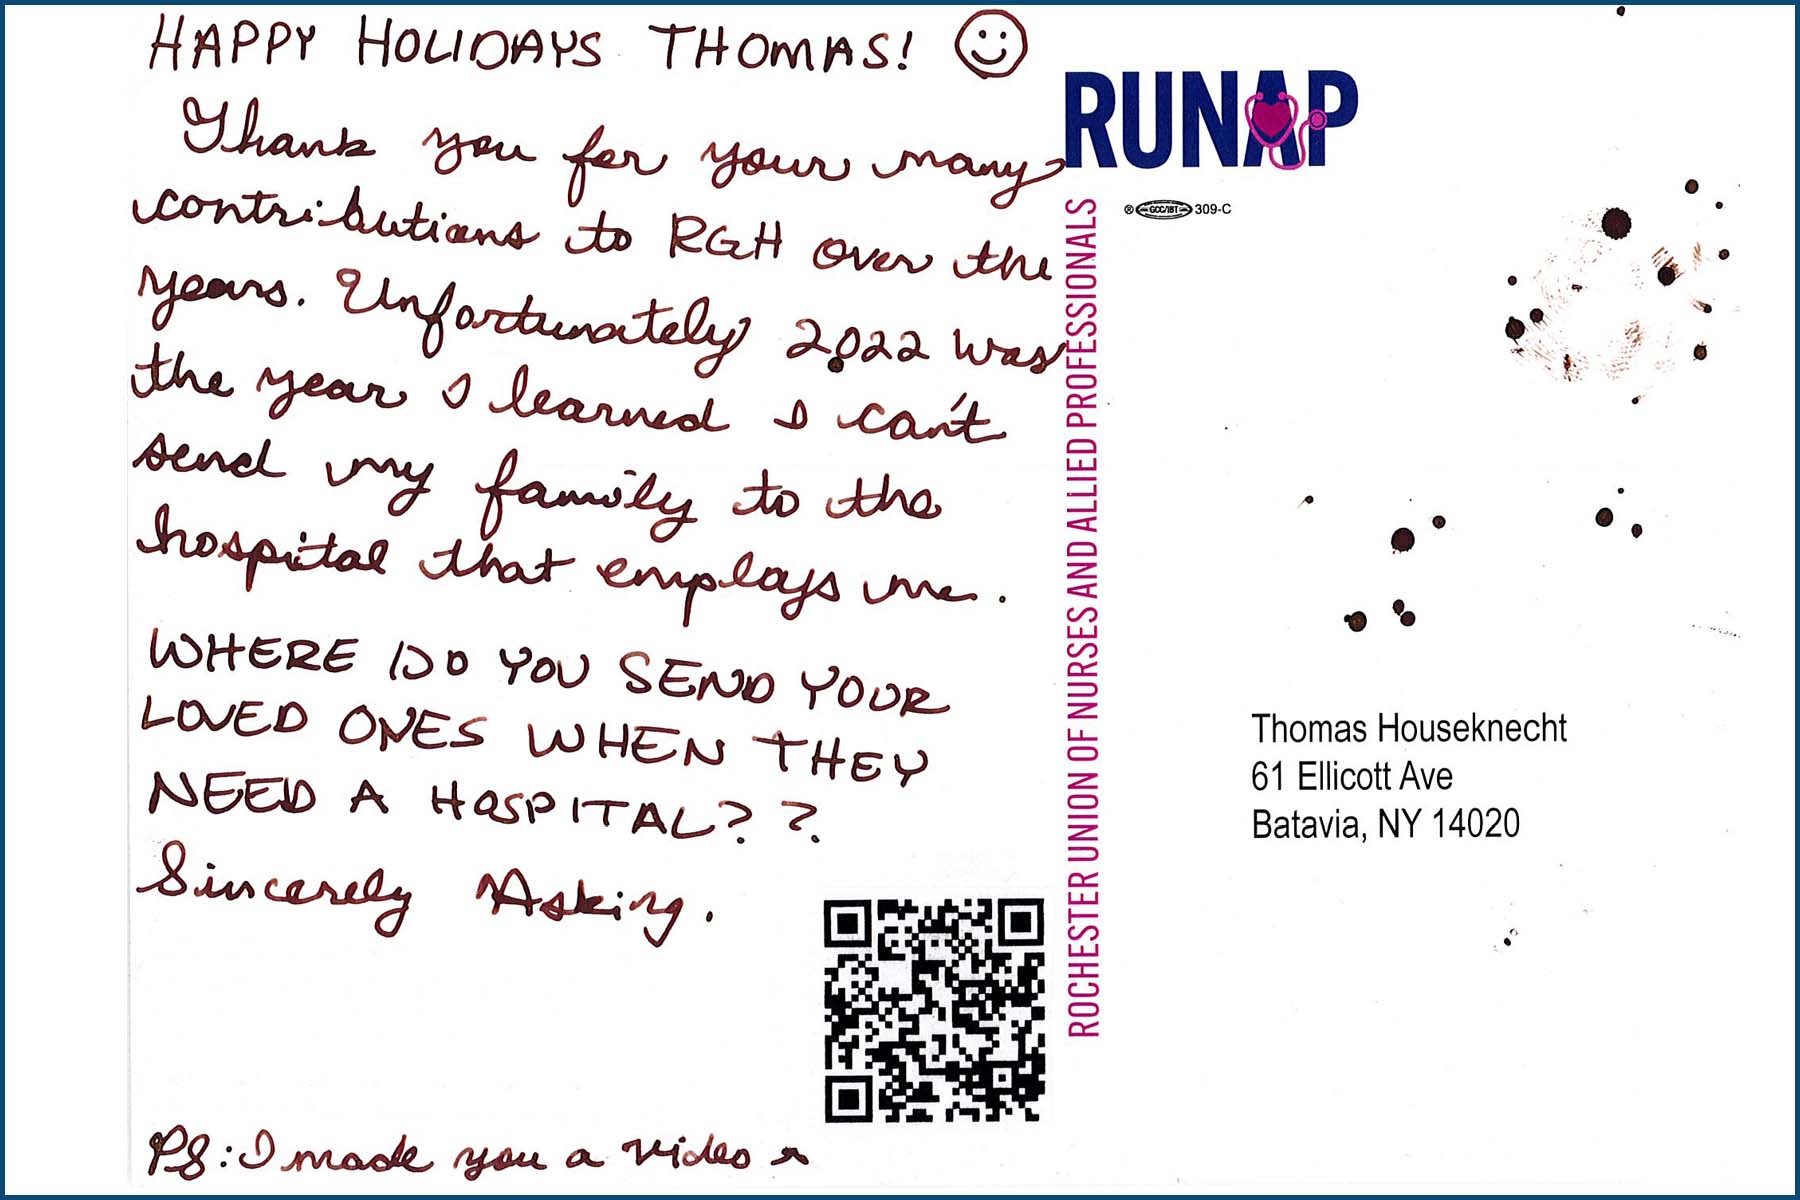 HAPPY HOLIDAYS THOMAS!
Thank you for your many
contributions to RGH over the
years. Unfortunately 2022 was
the year I learned I can't
send my family to the
hospital that employs me.
WHERE DO YOU SEND YOUR
LOVED ONES WHEN THEY
NEED A HOSPITAL??
Sincerely Asking.
PS: I made you a video
RUNAP
ROCHESTER UNION OF NURSES AND ALLIED PROFESSIONALS
® GCC/IBT 309-C
Thomas Houseknecht
61 Ellicott Ave
Batavia, NY 14020